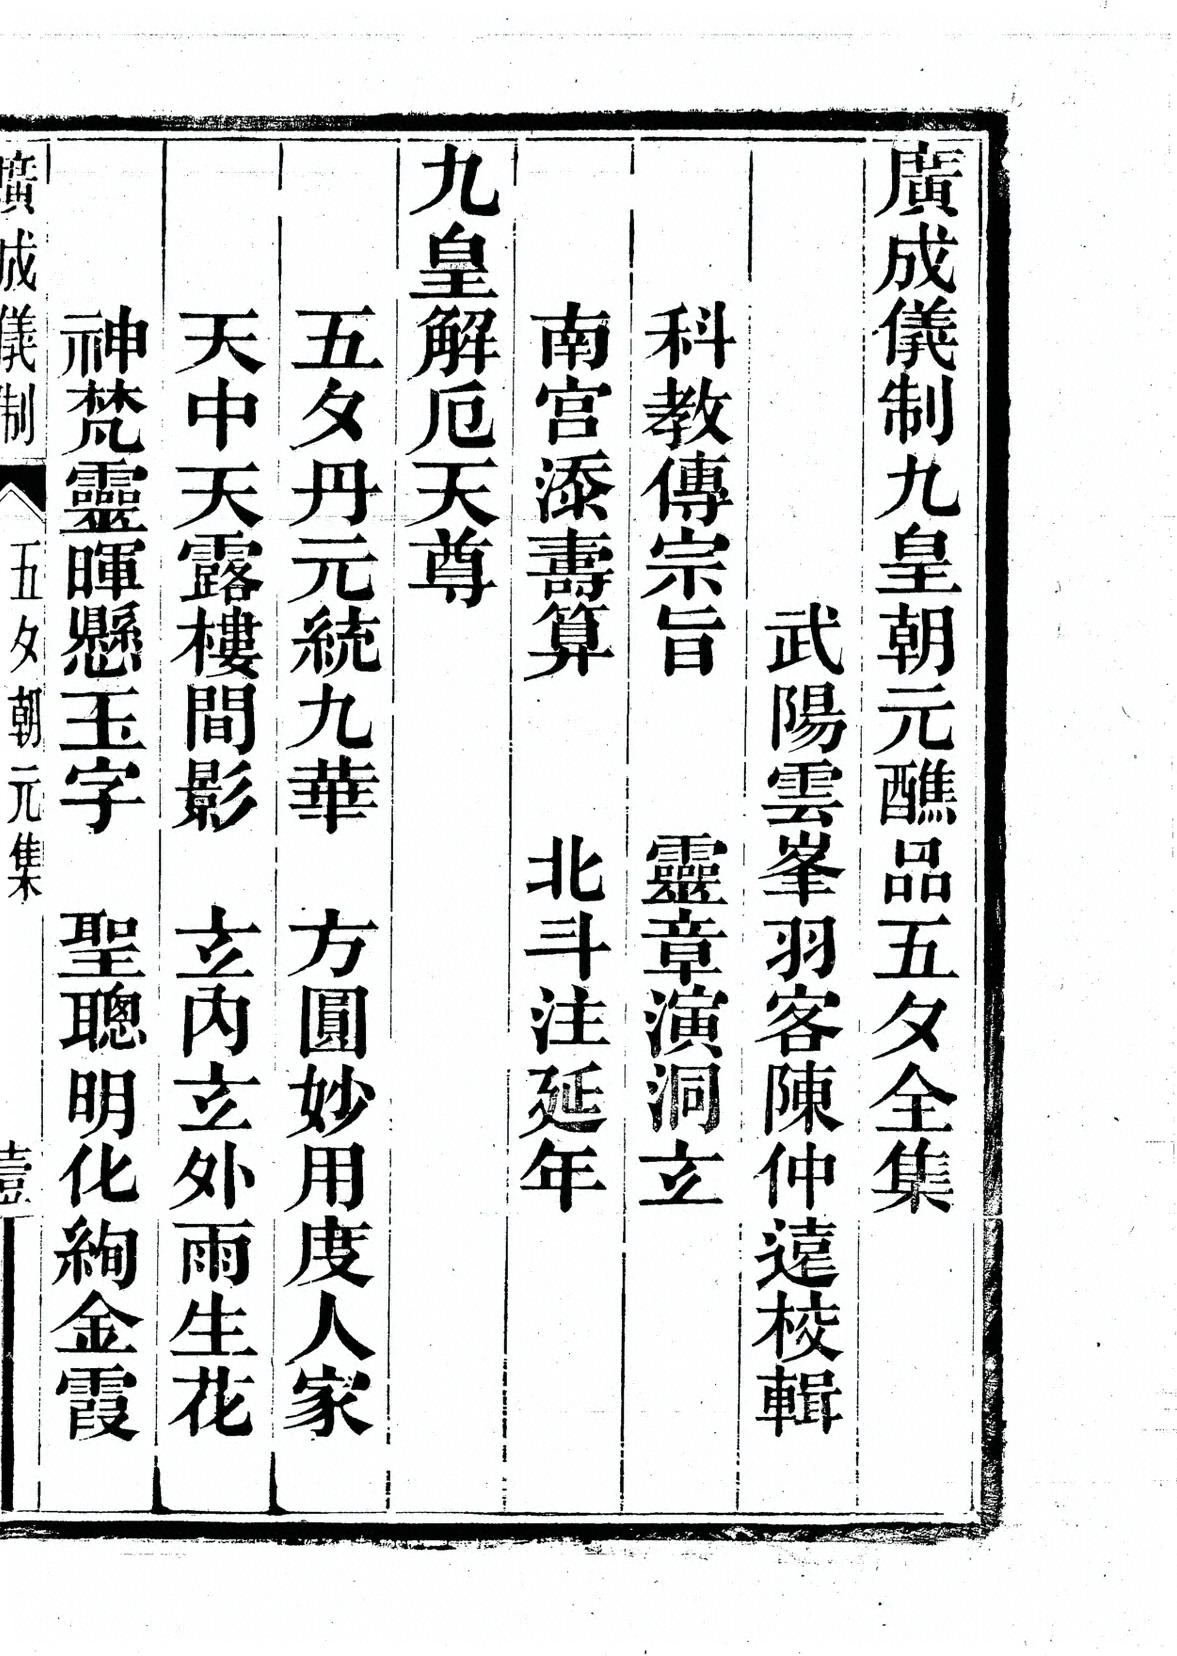 廣成儀制九皇朝元醮品五夕全集
武陽雲峯羽客陳仲遠校輯
科教傳宗旨　靈章演洞玄
南宮添壽算　北斗注延年
九皇解厄天尊
五夕丹元統九華　方圓妙用度人家
天中天露樓間影　玄內玄外雨生花
神梵靈暉懸玉字　聖聰明化絢金霞
廣成儀制　五夕朝元集　壹